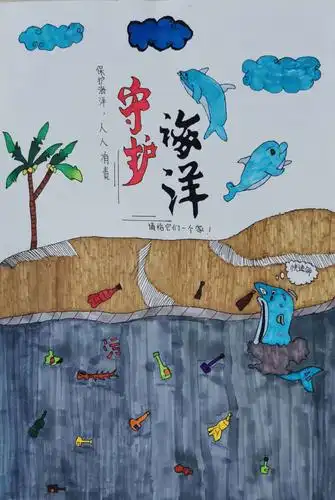 保护海洋，人人有责
守护
海洋
请给它们一个家！